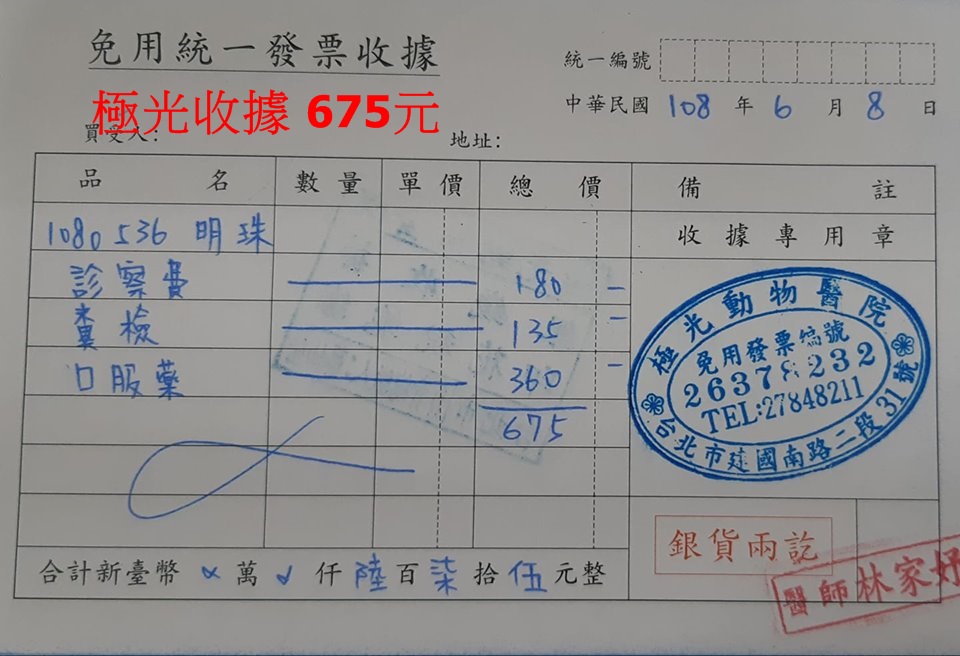 免用統一發票收據
統一編號
極光收據 675元
中華民國 108 年 6 月 8 日
買受人:
地址:
品名 數量 單價 總價 備註
1080536 明珠
收據專用章
診察費 180 —
糞檢 135 —
口服藥 360 —
675
極光動物醫院
免用發票編號
26378232
TEL:27848211
台北市建國南路二段31號
銀貨兩訖
合計新臺幣 萬 仟 陸 百 柒 拾 伍 元整
醫師林家妤